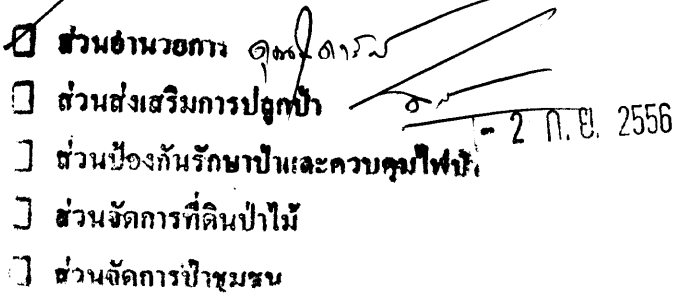 ส่วนอำนวยการ
ส่วนส่งเสริมการปลูกป่า
- 2 ก.ย. 2556
ส่วนป้องกันรักษาป่าและควบคุมไฟป่า
ส่วนจัดการที่ดินป่าไม้
ส่วนจัดการป่าชุมชน